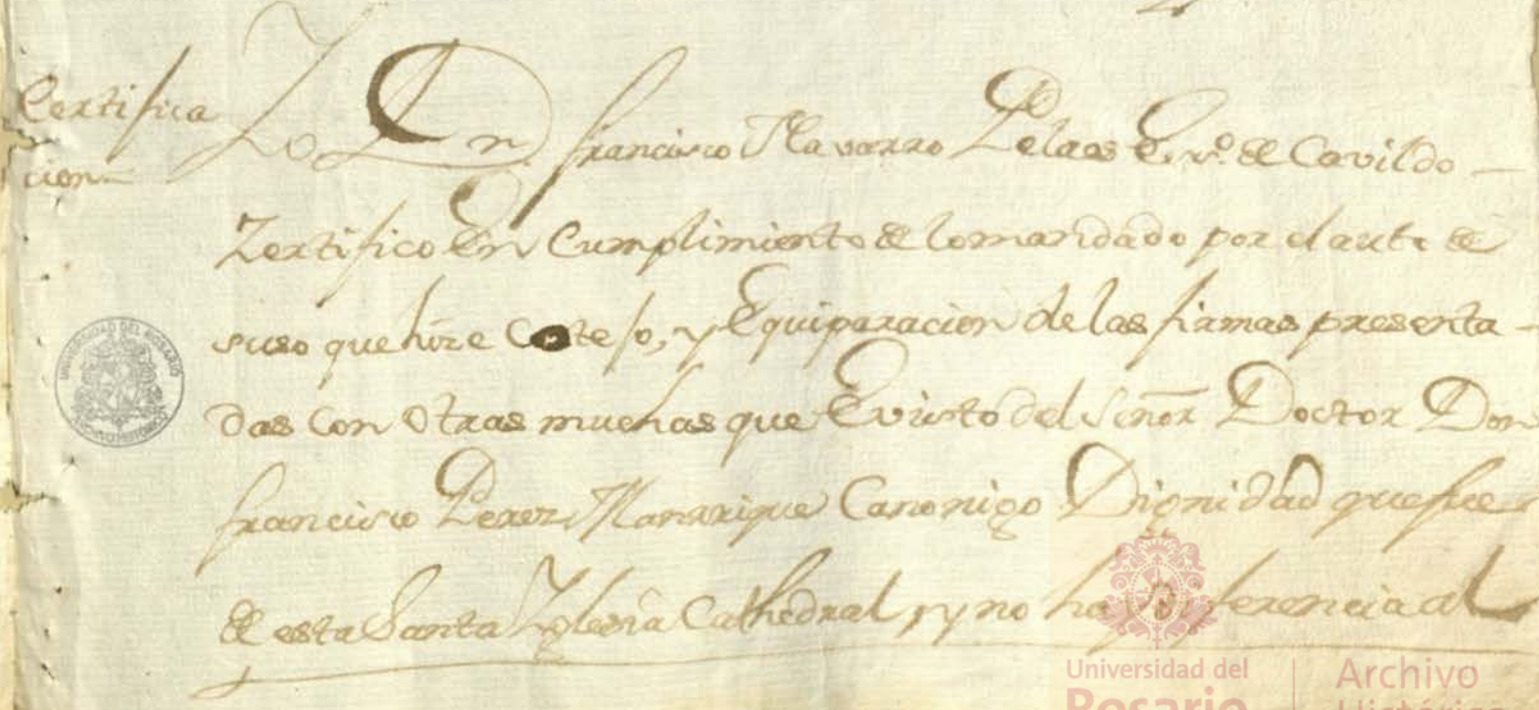 Certifica
cion
Yo Dn francisco Navarro Pelaes Esno. de Cavildo
Zertifico En Cumplimiento de lo mandado por el auto de
suso que hize Cotejo, y Equiparacion de las firmas presenta
das con otras muchas que E visto del Señor Doctor Don
francisco Perez Manrrique Canonigo Dignidad que fue
de esta Santa Yglesia Cathedral, y no hay diferencia al
UNIVERSIDAD DEL ROSARIO
ARCHIVO HISTORICO
Universidad del
Rosario
Archivo
Histórico